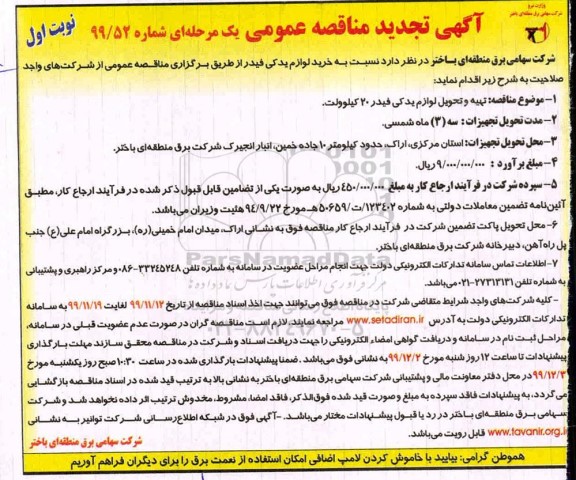 وزارت نیرو
شرکت سهامی برق منطقه‌ای باختر
نوبت اول
آگهی تجدید مناقصه عمومی یک مرحله‌ای شماره ۹۹/۵۲
شرکت سهامی برق منطقه‌ای باختر در نظر دارد نسبت به خرید لوازم یدکی فیدر از طریق برگزاری مناقصه عمومی از شرکت‌های واجد
صلاحیت به شرح زیر اقدام نماید:
۱- موضوع مناقصه: تهیه و تحویل لوازم یدکی فیدر ۲۰ کیلوولت.
۲- مدت تحویل تجهیزات: سه (۳) ماه شمسی.
۳- محل تحویل تجهیزات: استان مرکزی، اراک، حدود کیلومتر ۱۰ جاده خمین، انبار انجیرک شرکت برق منطقه‌ای باختر.
۴- مبلغ برآورد : ۹/۰۰۰/۰۰۰/۰۰۰ ریال.
۵- سپرده شرکت در فرآیند ارجاع کار به مبلغ ۴۵۰/۰۰۰/۰۰۰ ریال به صورت یکی از تضامین قابل قبول ذکر شده در فرآیند ارجاع کار، مطابق
آئین‌نامه تضمین معاملات دولتی به شماره ۱۲۳۴۰۲/ت/۵۰۶۵۹هـ مورخ ۹۴/۹/۲۲ هئیت وزیران می‌باشد.
۶- محل تحویل پاکت تضمین شرکت در فرآیند ارجاع کار مناقصه فوق به نشانی اراک، میدان امام خمینی(ره)، بزرگراه امام علی(ع) جنب
پل راه‌آهن، دبیرخانه شرکت برق منطقه‌ای باختر.
۷- اطلاعات تماس سامانه تدارکات الکترونیکی دولت جهت انجام مراحل عضویت در سامانه به شماره تلفن ۳۳۲۴۵۲۴۸-۰۸۶ مرکز راهبری و پشتیبانی
به شماره تلفن ۲۷۳۱۳۱۳۱-۰۲۱ می‌باشد.
- کلیه شرکت‌های واجد شرایط متقاضی شرکت در مناقصه فوق می‌توانند جهت اخذ اسناد مناقصه از تاریخ ۹۹/۱۱/۱۲ لغایت ۹۹/۱۱/۱۹ به سامانه
تدارکات الکترونیکی دولت به آدرس www.setadiran.ir مراجعه نمایند لازم است مناقصه گران در صورت عدم عضویت قبلی در سامانه،
مراحل ثبت نام در سامانه و دریافت گواهی امضاء الکترونیکی را جهت دریافت اسناد و شرکت در مناقصه محقق سازند مهلت بارگذاری
پیشنهادات تا ساعت ۱۲ روز شنبه مورخ ۹۹/۱۲/۲ به نشانی فوق می‌باشد. ضمنا پیشنهادات بارگذاری شده در ساعت ۱۰:۳۰ صبح روز یکشنبه مورخ
۹۹/۱۲/۳ در محل دفتر معاونت مالی و پشتیبانی شرکت سهامی برق منطقه‌ای باختر به نشانی بالا به ترتیب قید شده در اسناد مناقصه بازگشایی
می‌گردد، به پیشنهادات فاقد سپرده به مبلغ و صورت قید شده فوق‌الذکر، فاقد امضا، مشروط، مخدوش ترتیب اثر داده نخواهد شد و شرکت
سهامی برق منطقه‌ای باختر در رد یا قبول پیشنهادات مختار می‌باشد. -آگهی فوق در شبکه اطلاع‌رسانی شرکت توانیر به نشانی
www.tavanir.org.ir قابل رویت می‌باشد.
شرکت سهامی برق منطقه‌ای باختر
هموطن گرامی: بیایید با خاموش کردن لامپ اضافی امکان استفاده از نعمت برق را برای دیگران فراهم آوریم
ParsNamadData